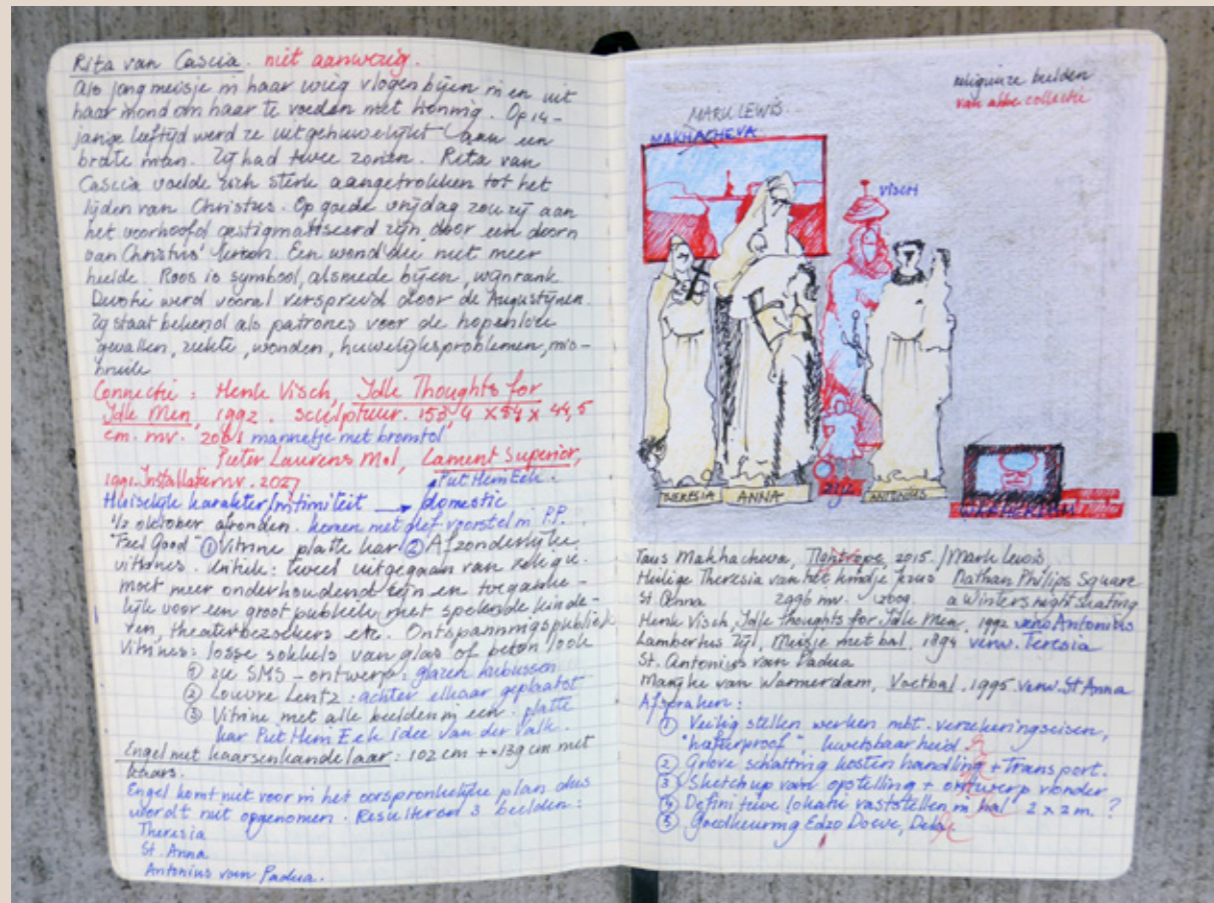 Rita van Cascia. niet aanwezig.
Als jong meisje in haar wieg vlogen bijen in en uit
haar mond om haar te voeden met honing. Op 14-
jarige leeftijd werd ze uitgehuwelijkt aan een
brute man. Zij had twee zonen. Rita van
Cascia voelde zich sterk aangetrokken tot het
lijden van Christus. Op goede vrijdag zou zij aan
het voorhoofd gestigmatiseerd zijn door een doorn
van Christus' kroon. Een wond die niet meer
heelde. Roos is symbool, alsmede bijen, wijnrank
Devotie werd vooral verspreid door de Augustijnen.
Zij staat bekend als patrones voor de hopenloze
gevallen, ziekte, wonden, huwelijksproblemen, mis-
bruik
Connectie: Henk Visch, Idle Thoughts for
Idle Men, 1992. sculptuur. 153,4 x 54 x 44,5
cm. mv. mannetje met bromtol
Pieter Laurens Mol, Lament Superior,
1991. Installatie mv. 2027
Piet Hein Eek.
Huiselijk karakter/intimiteit → domestic
1/2 oktober afronden. komen met def voorstel in P.P.
"Feel Good" ① Vitrine platte kar ② Afzonderlijke
vitrines. kritiek: teveel uitgegaan van religie.
moet meer onderhoudend zijn en toeganke-
lijk voor een groot publiek met spelende kinde-
ren, theaterbezoekers etc. Ontspanningspubliek
Vitrines: losse sokkels van glas of beton look
① zie SMS-ontwerp: glazen kubussen
② Louvre Lentz: achter elkaar geplaatst
③ Vitrine met alle beelden in een platte
kar Piet Hein Eek idee van der Valk.
Engel met kaarsenkandelaar: 102 cm + 139 cm met
kaars.
Engel komt niet voor in het oorspronkelijke plan dus
wordt niet opgenomen. Resulteren 3 beelden:
Theresia
St. Anna
Antonius van Padua.
religieuze beelden
van abbe collectie
MARK LEWIS
MAKHACHEVA
VISCH
TERESIA
ANNA
ZIJL
ANTONIUS
WARMERDAM
Taus Makhacheva, Tightrope, 2015. / Mark Lewis
Heilige Theresia van het kindje Jezus Nathan Philips Square
St Anna 2996 mv. 2009. a Winters night skating
Henk Visch, Idle thoughts for Idle Men, 1992 verw Antonius
Lambertus Zijl, Meisje met bal, 1894 verw. Teresia
St. Antonius van Padua
Marijke van Warmerdam, Voetbal, 1995 verw. St Anna
Afspraken:
① Veilig stellen werken mbt. verzekeringseisen,
"hufterproof", kwetsbaarheid.
② Grove schatting kosten handling + Transport.
③ Sketch up van opstelling + ontwerp vlonder
④ Definitieve lokatie vaststellen in hal 2 x 2 m. ?
⑤ Goedkeuring Edzo Doeve,